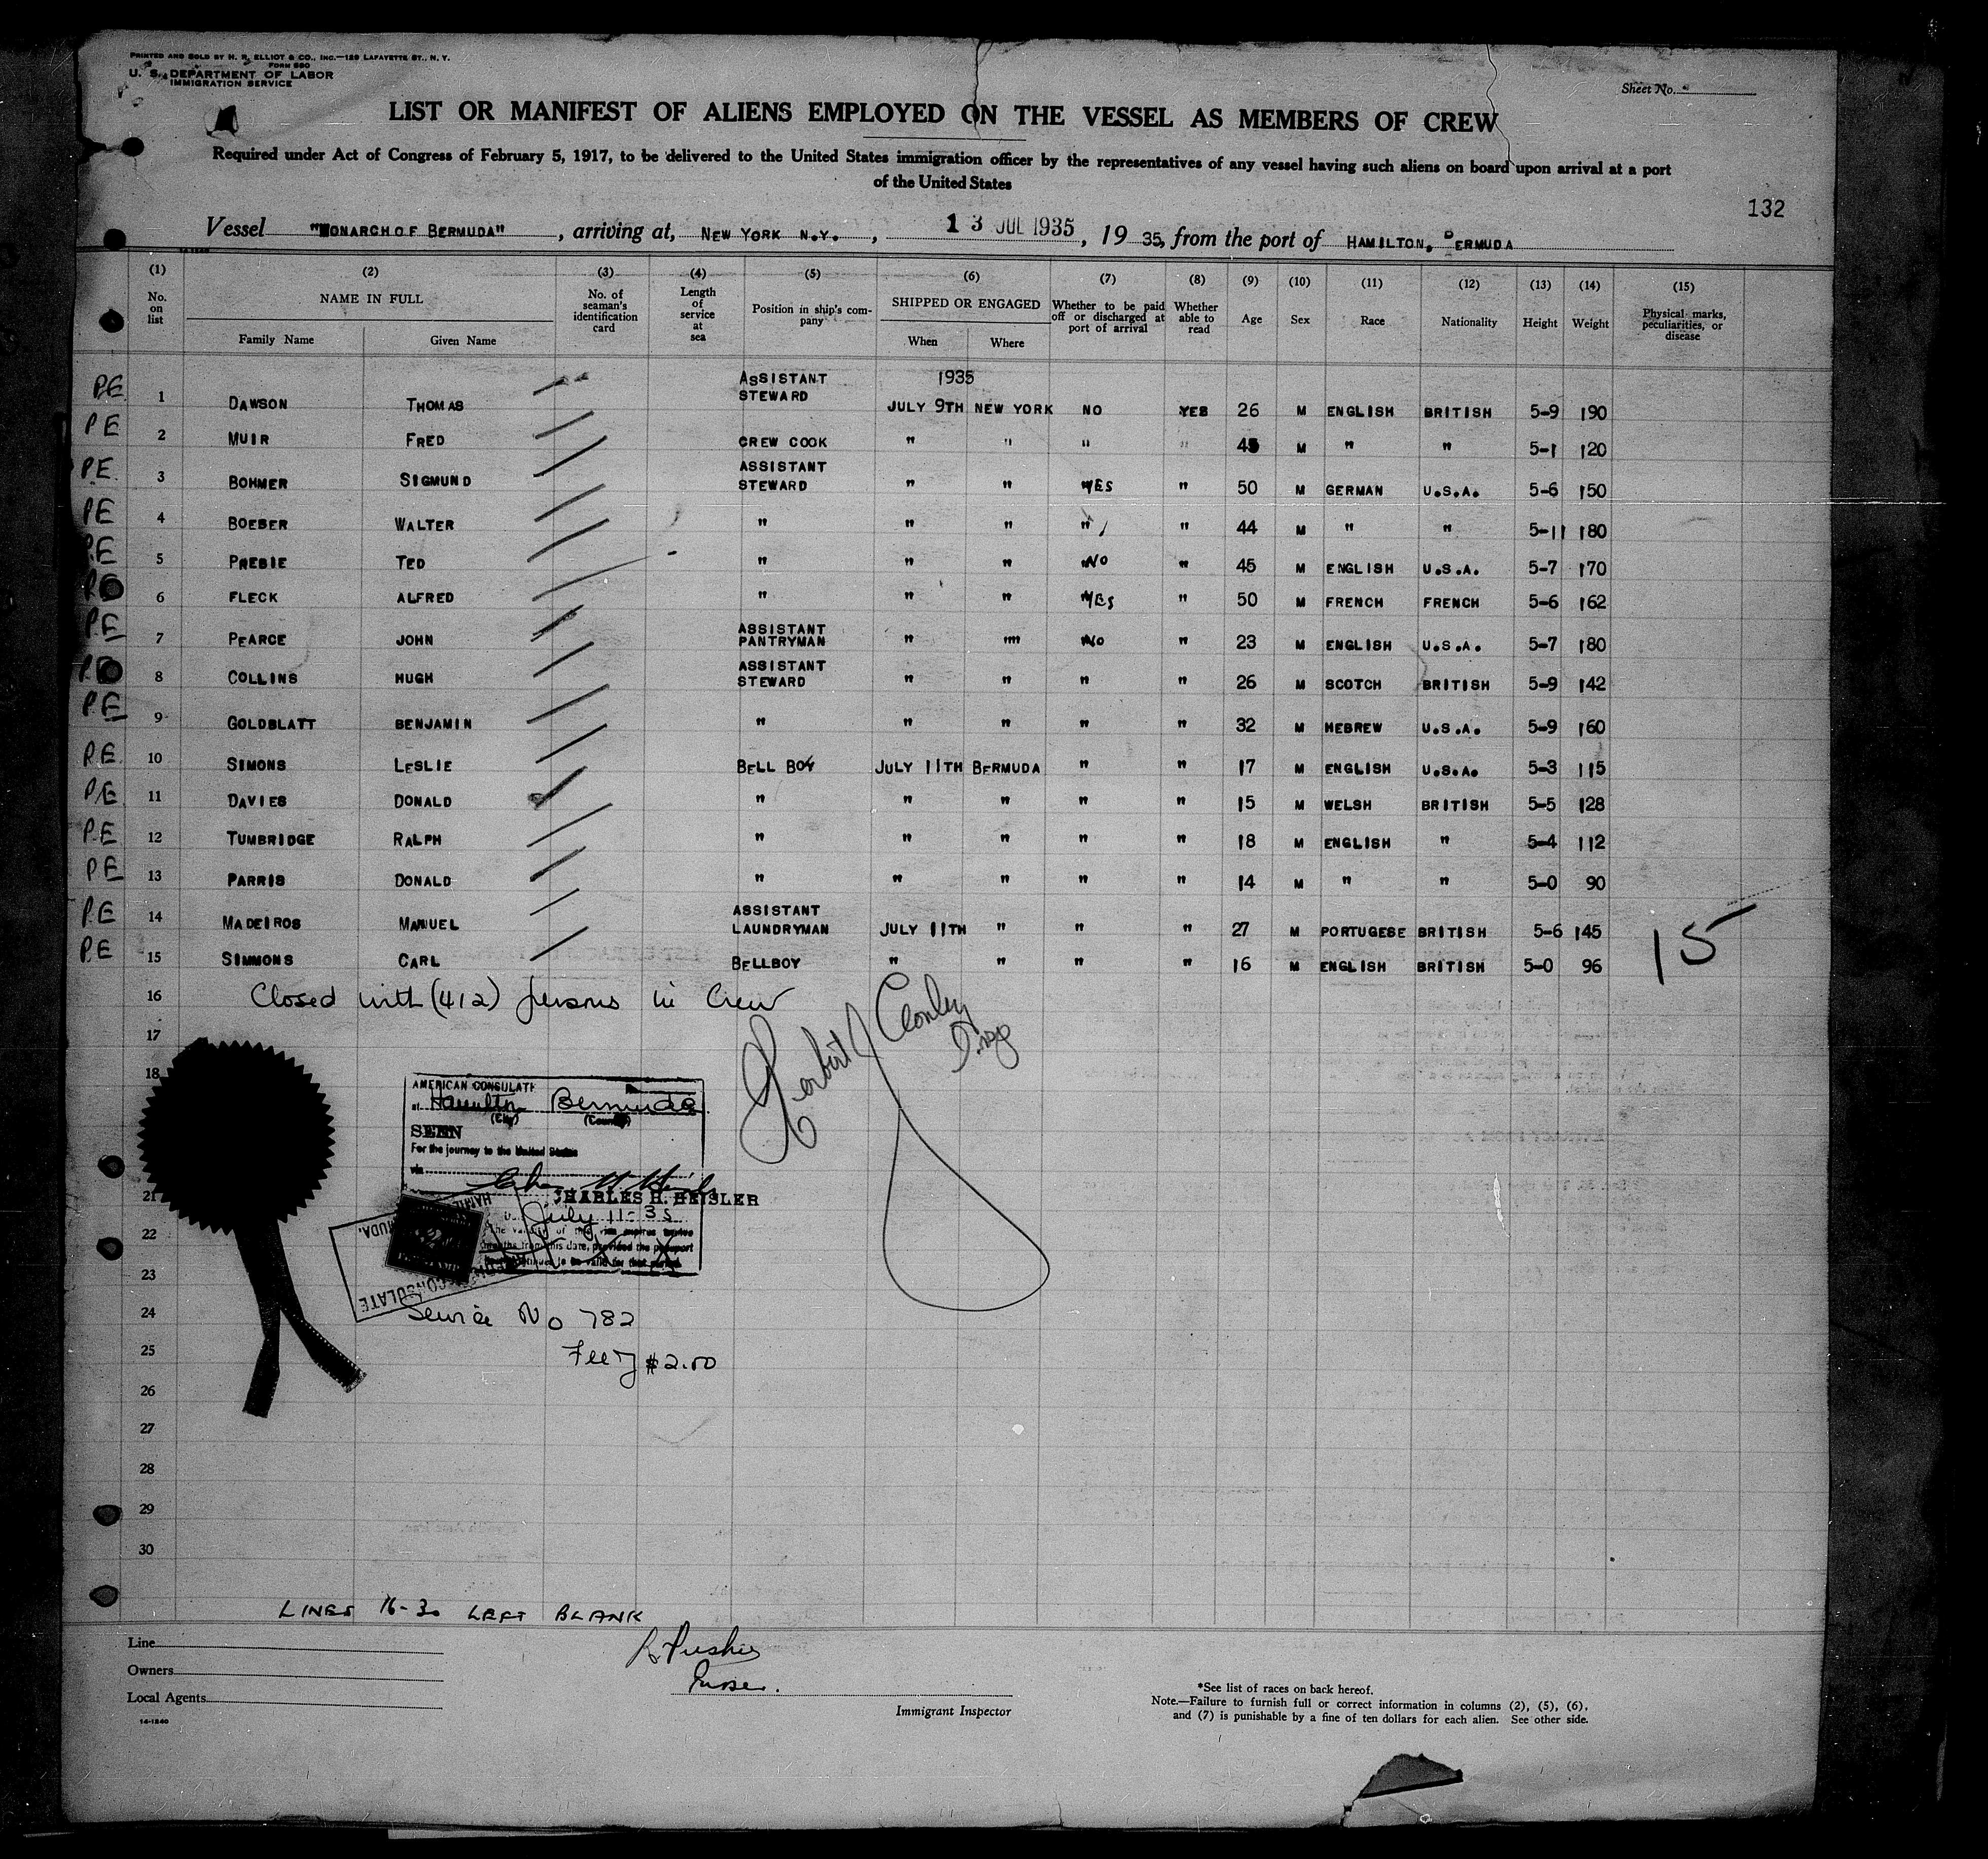 PRINTED AND SOLD BY H. R. ELLIOT & CO., INC.—129 LAFAYETTE ST., N. Y.
FORM 680
U. S. DEPARTMENT OF LABOR
IMMIGRATION SERVICE
Sheet No.
LIST OR MANIFEST OF ALIENS EMPLOYED ON THE VESSEL AS MEMBERS OF CREW
Required under Act of Congress of February 5, 1917, to be delivered to the United States immigration officer by the representatives of any vessel having such aliens on board upon arrival at a port
of the United States
132
Vessel "MONARCH OF BERMUDA", arriving at, NEW YORK N.Y., 13 JUL 1935, 19 35, from the port of HAMILTON, BERMUDA
14-1240
(1) No. on list (2) NAME IN FULL Family Name Given Name (3) No. of seaman's identification card (4) Length of service at sea (5) Position in ship's company (6) SHIPPED OR ENGAGED When Where (7) Whether to be paid off or discharged at port of arrival (8) Whether able to read (9) Age (10) Sex (11) Race (12) Nationality (13) Height (14) Weight (15) Physical marks, peculiarities, or disease
PE 1 DAWSON THOMAS ASSISTANT STEWARD 1935 JULY 9TH NEW YORK NO YES 26 M ENGLISH BRITISH 5-9 190
PE 2 MUIR FRED CREW COOK " " " " 45 M " " 5-1 120
P.E. 3 BOHMER SIGMUND ASSISTANT STEWARD " " YES " 50 M GERMAN U.S.A. 5-6 150
PE 4 BOEBER WALTER " " " " " 44 M " " 5-11 180
P.E 5 PREBIE TED " " " NO " 45 M ENGLISH U.S.A. 5-7 170
PE 6 FLECK ALFRED " " " YES " 50 M FRENCH FRENCH 5-6 162
P.E 7 PEARCE JOHN ASSISTANT PANTRYMAN " "" NO " 23 M ENGLISH U.S.A. 5-7 180
PE 8 COLLINS HUGH ASSISTANT STEWARD " " " " 26 M SCOTCH BRITISH 5-9 142
P.E 9 GOLDBLATT BENJAMIN " " " " " 32 M HEBREW U.S.A. 5-9 160
P.E. 10 SIMONS LESLIE BELL BOY JULY 11TH BERMUDA " " 17 M ENGLISH U.S.A. 5-3 115
P.E. 11 DAVIES DONALD " " " " " 15 M WELSH BRITISH 5-5 128
P.E 12 TUMBRIDGE RALPH " " " " " 18 M ENGLISH " 5-4 112
PE 13 PARRIS DONALD " " " " " 14 M " " 5-0 90
P.E 14 MADEIROS MANUEL ASSISTANT LAUNDRYMAN JULY 11TH " " " 27 M PORTUGESE BRITISH 5-6 145
P.E 15 SIMMONS CARL BELLBOY " " " " 16 M ENGLISH BRITISH 5-0 96
15
16 Closed with (412) persons in Crew
Herbert J Conley
17
18
AMERICAN CONSULATE
at Hamilton Bermuda
(City) (Country)
SEEN
For the journey to the United States
via
CHARLES H. HEISLER
July 11-35
The validity of this visa expires twelve
months from this date, provided the passport
continues to be valid for that period
CONSULATE
21
22
23
24 Service No 782
25 Fee $2.00
26
27
28
29
30
LINES 16-30 LEFT BLANK
Line
Owners
Local Agents
14-1240
Immigrant Inspector
*See list of races on back hereof.
Note.—Failure to furnish full or correct information in columns (2), (5), (6),
and (7) is punishable by a fine of ten dollars for each alien. See other side.